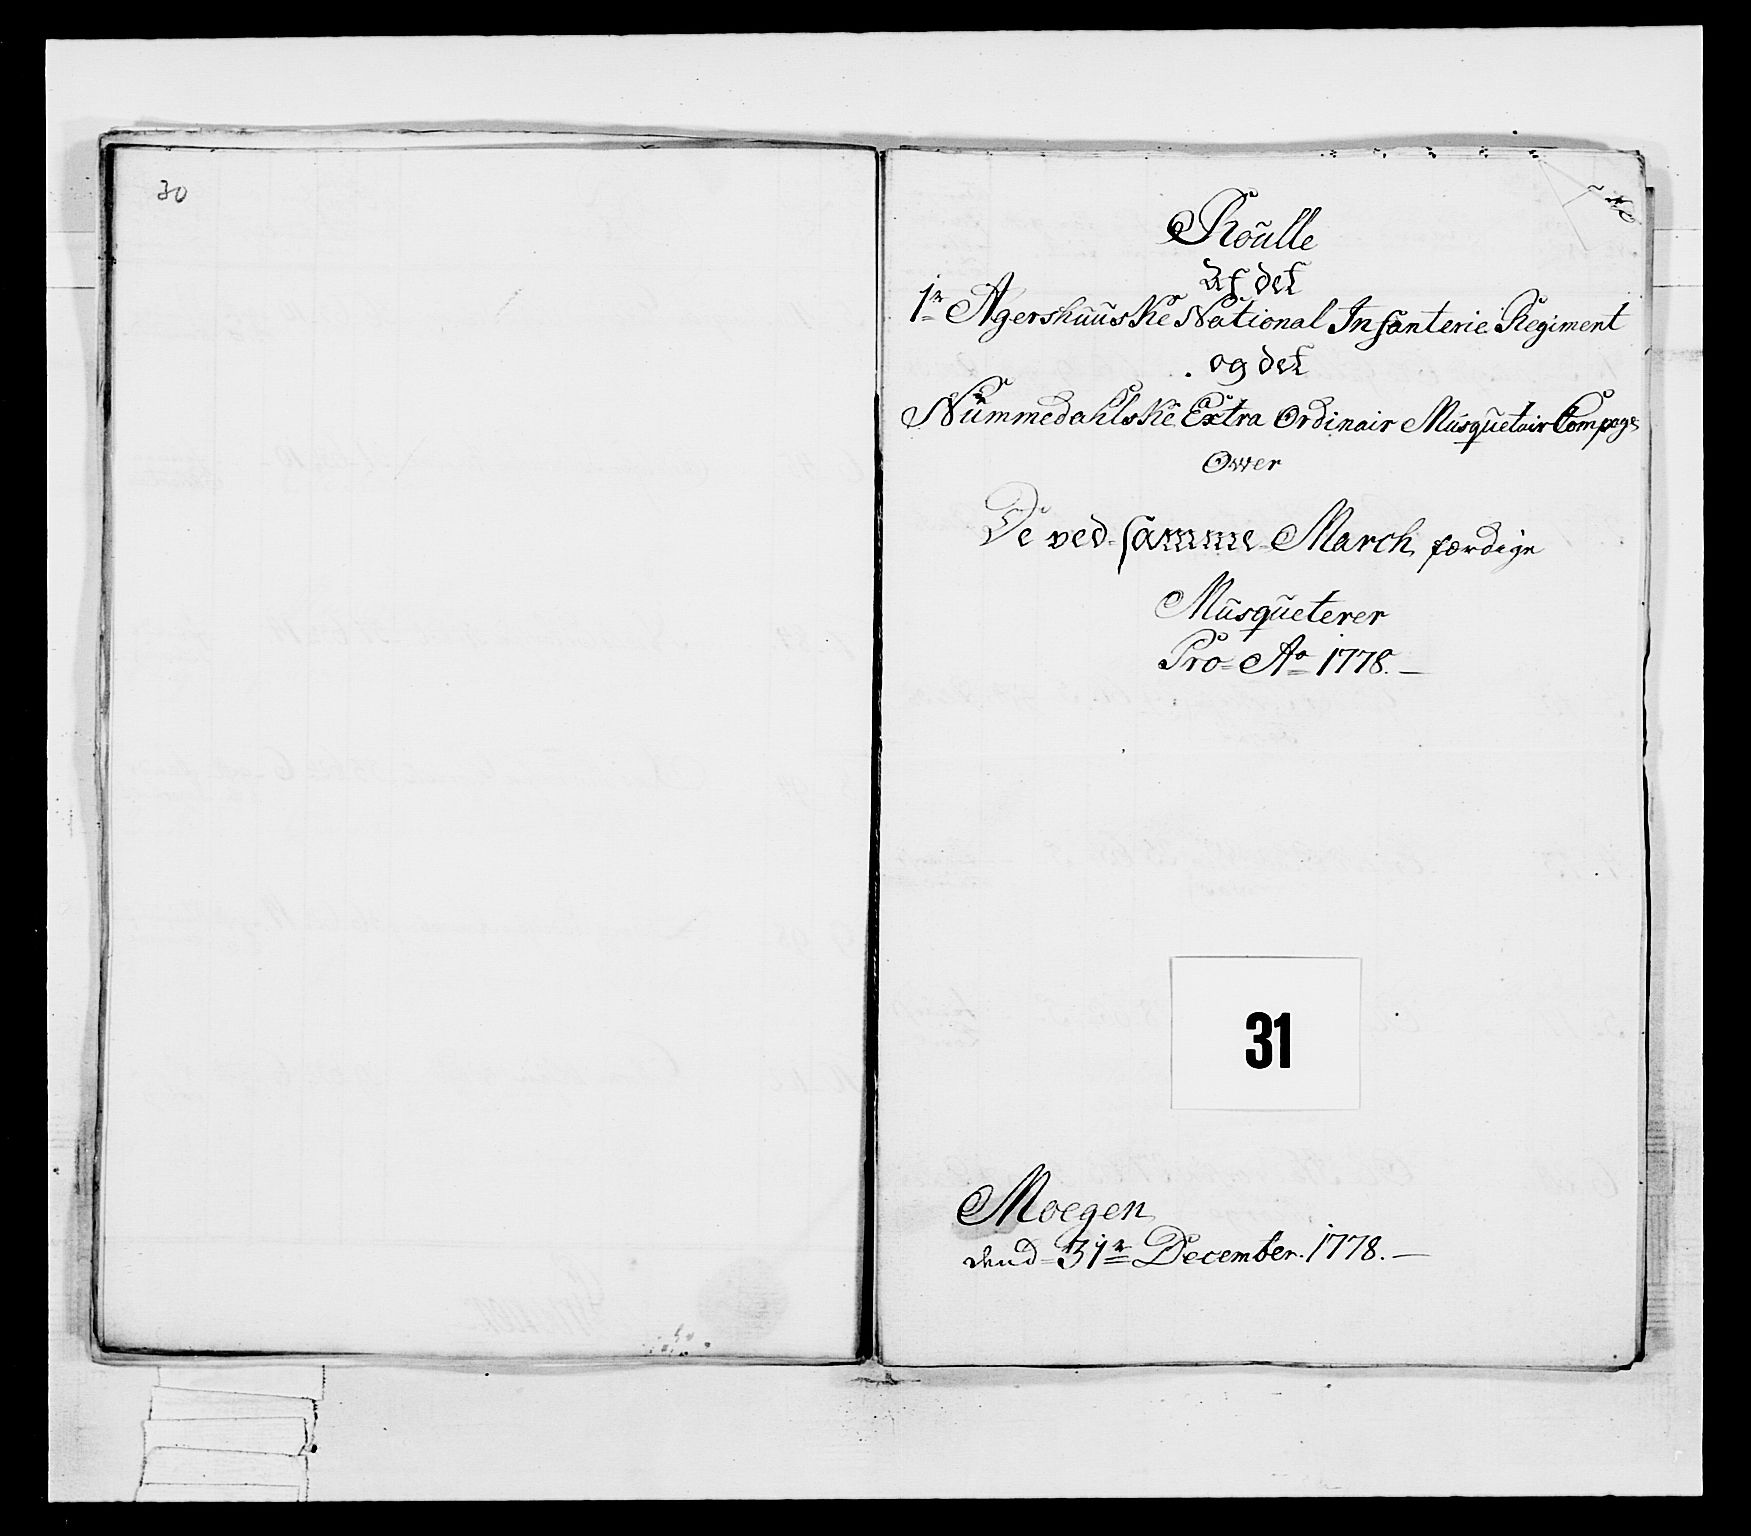 30
Roulle
Af det
1r Agershuuske National Infanterie Regiment
og det
Nummedahlske Extra Ordinair Musquetair Compage
Over
De ved samme March færdige
Musqueterer
Pro Ao 1778.
31
Moegen
dend 31r December 1778.